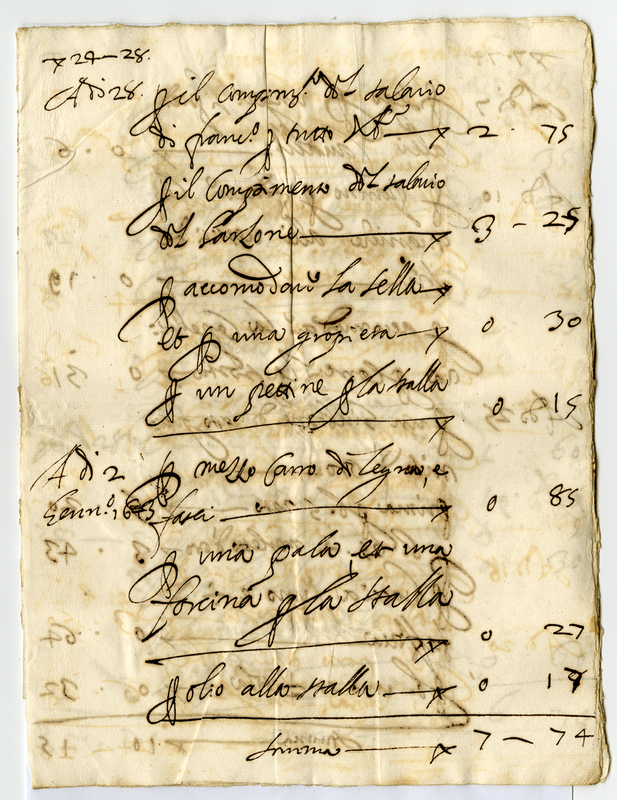 x 24 – 28.
Adi 28. p il Compim.to del salario
di franc.o p tutto Xbre x 2 · 75
p il Compimento del salario
del Garzone x 3 – 25
p accomodare la sella x
et p una gropiera x 0 30
p un pettine p la stalla
x 0 15
Adi 2 p mezzo Carro di legna, e
Genn.o 1643 fasci x 0 85
p una pala, et una
forcina p la stalla
x 0 27
p olio alla stalla x 0 17
summa x 7 – 74